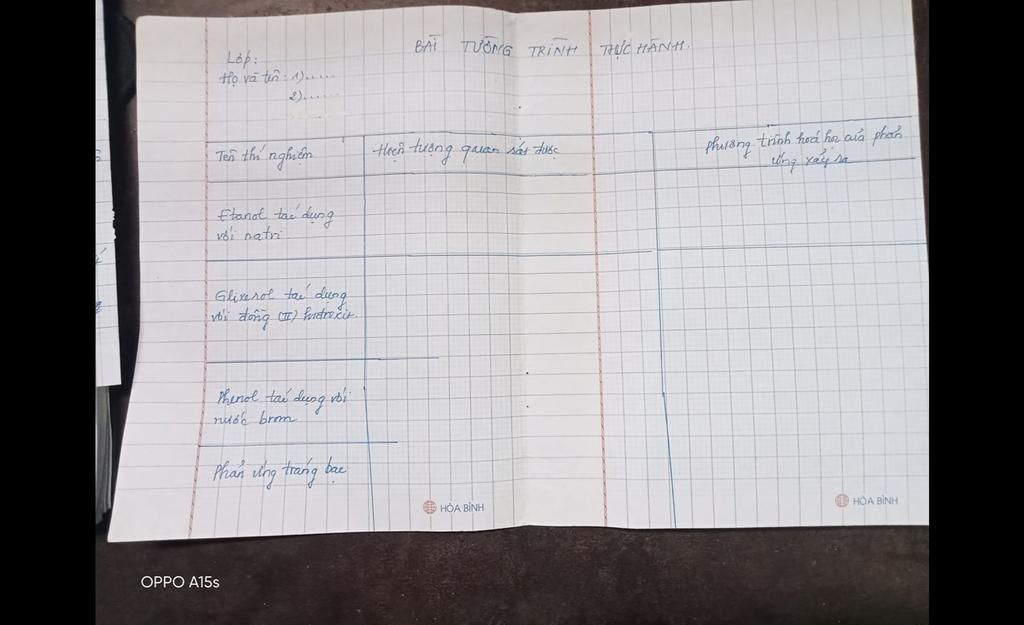 BÀI TƯỜNG TRÌNH THỰC HÀNH.
Lớp:
Họ và tên: 1).....
2)......
Tên thí nghiệm
Hiện tượng quan sát được
Phương trình hoá học của phản
ứng xảy ra
Etanol tác dụng
với natri
Glixerol tác dụng
với đồng (II) hidroxit.
Phenol tác dụng với
nước brom
Phản ứng tráng bạc
HÒA BÌNH
HÒA BÌNH
OPPO A15s